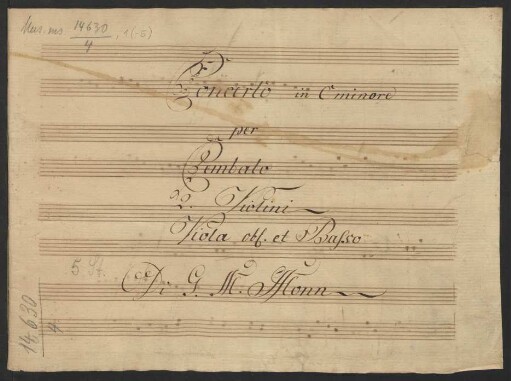 Mus. ms. 14630/4, 1(-5)
Concerto in C minore
per
Cembalo
2. Violini
Viola obl. et Basso
5 St.
Di G. M. Monn
14,630
4